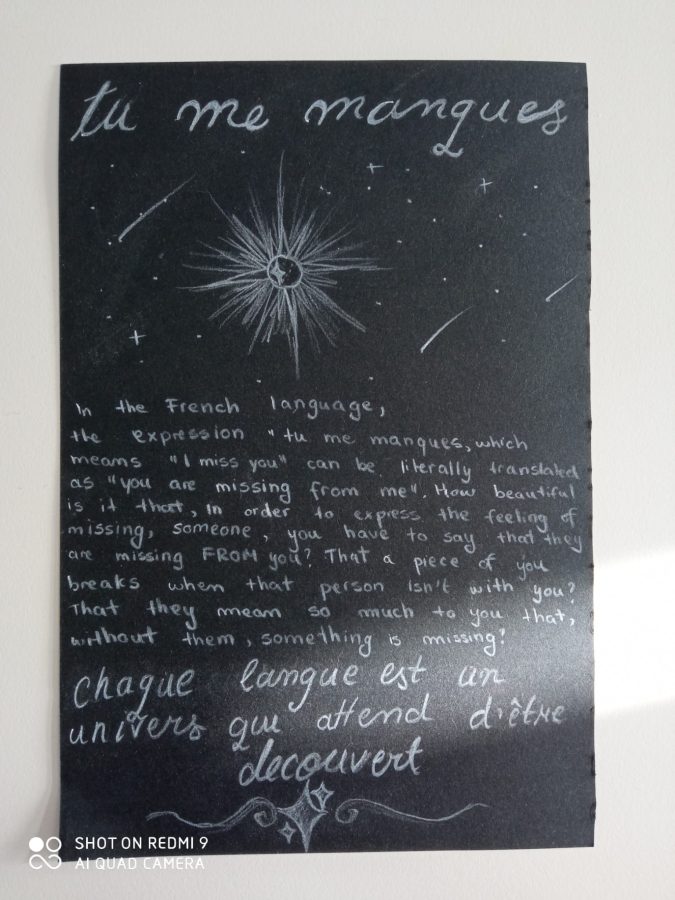 tu me manques
In the French language,
the expression "tu me manques, which
means "I miss you" can be literally translated
as "you are missing from me". How beautiful
is it that, in order to express the feeling of
missing, someone, you have to say that they
are missing FROM you? That a piece of you
breaks when that person isn't with you?
That they mean so much to you that,
without them, something is missing?
chaque langue est un
univers qui attend d'être
decouvert
SHOT ON REDMI 9
AI QUAD CAMERA